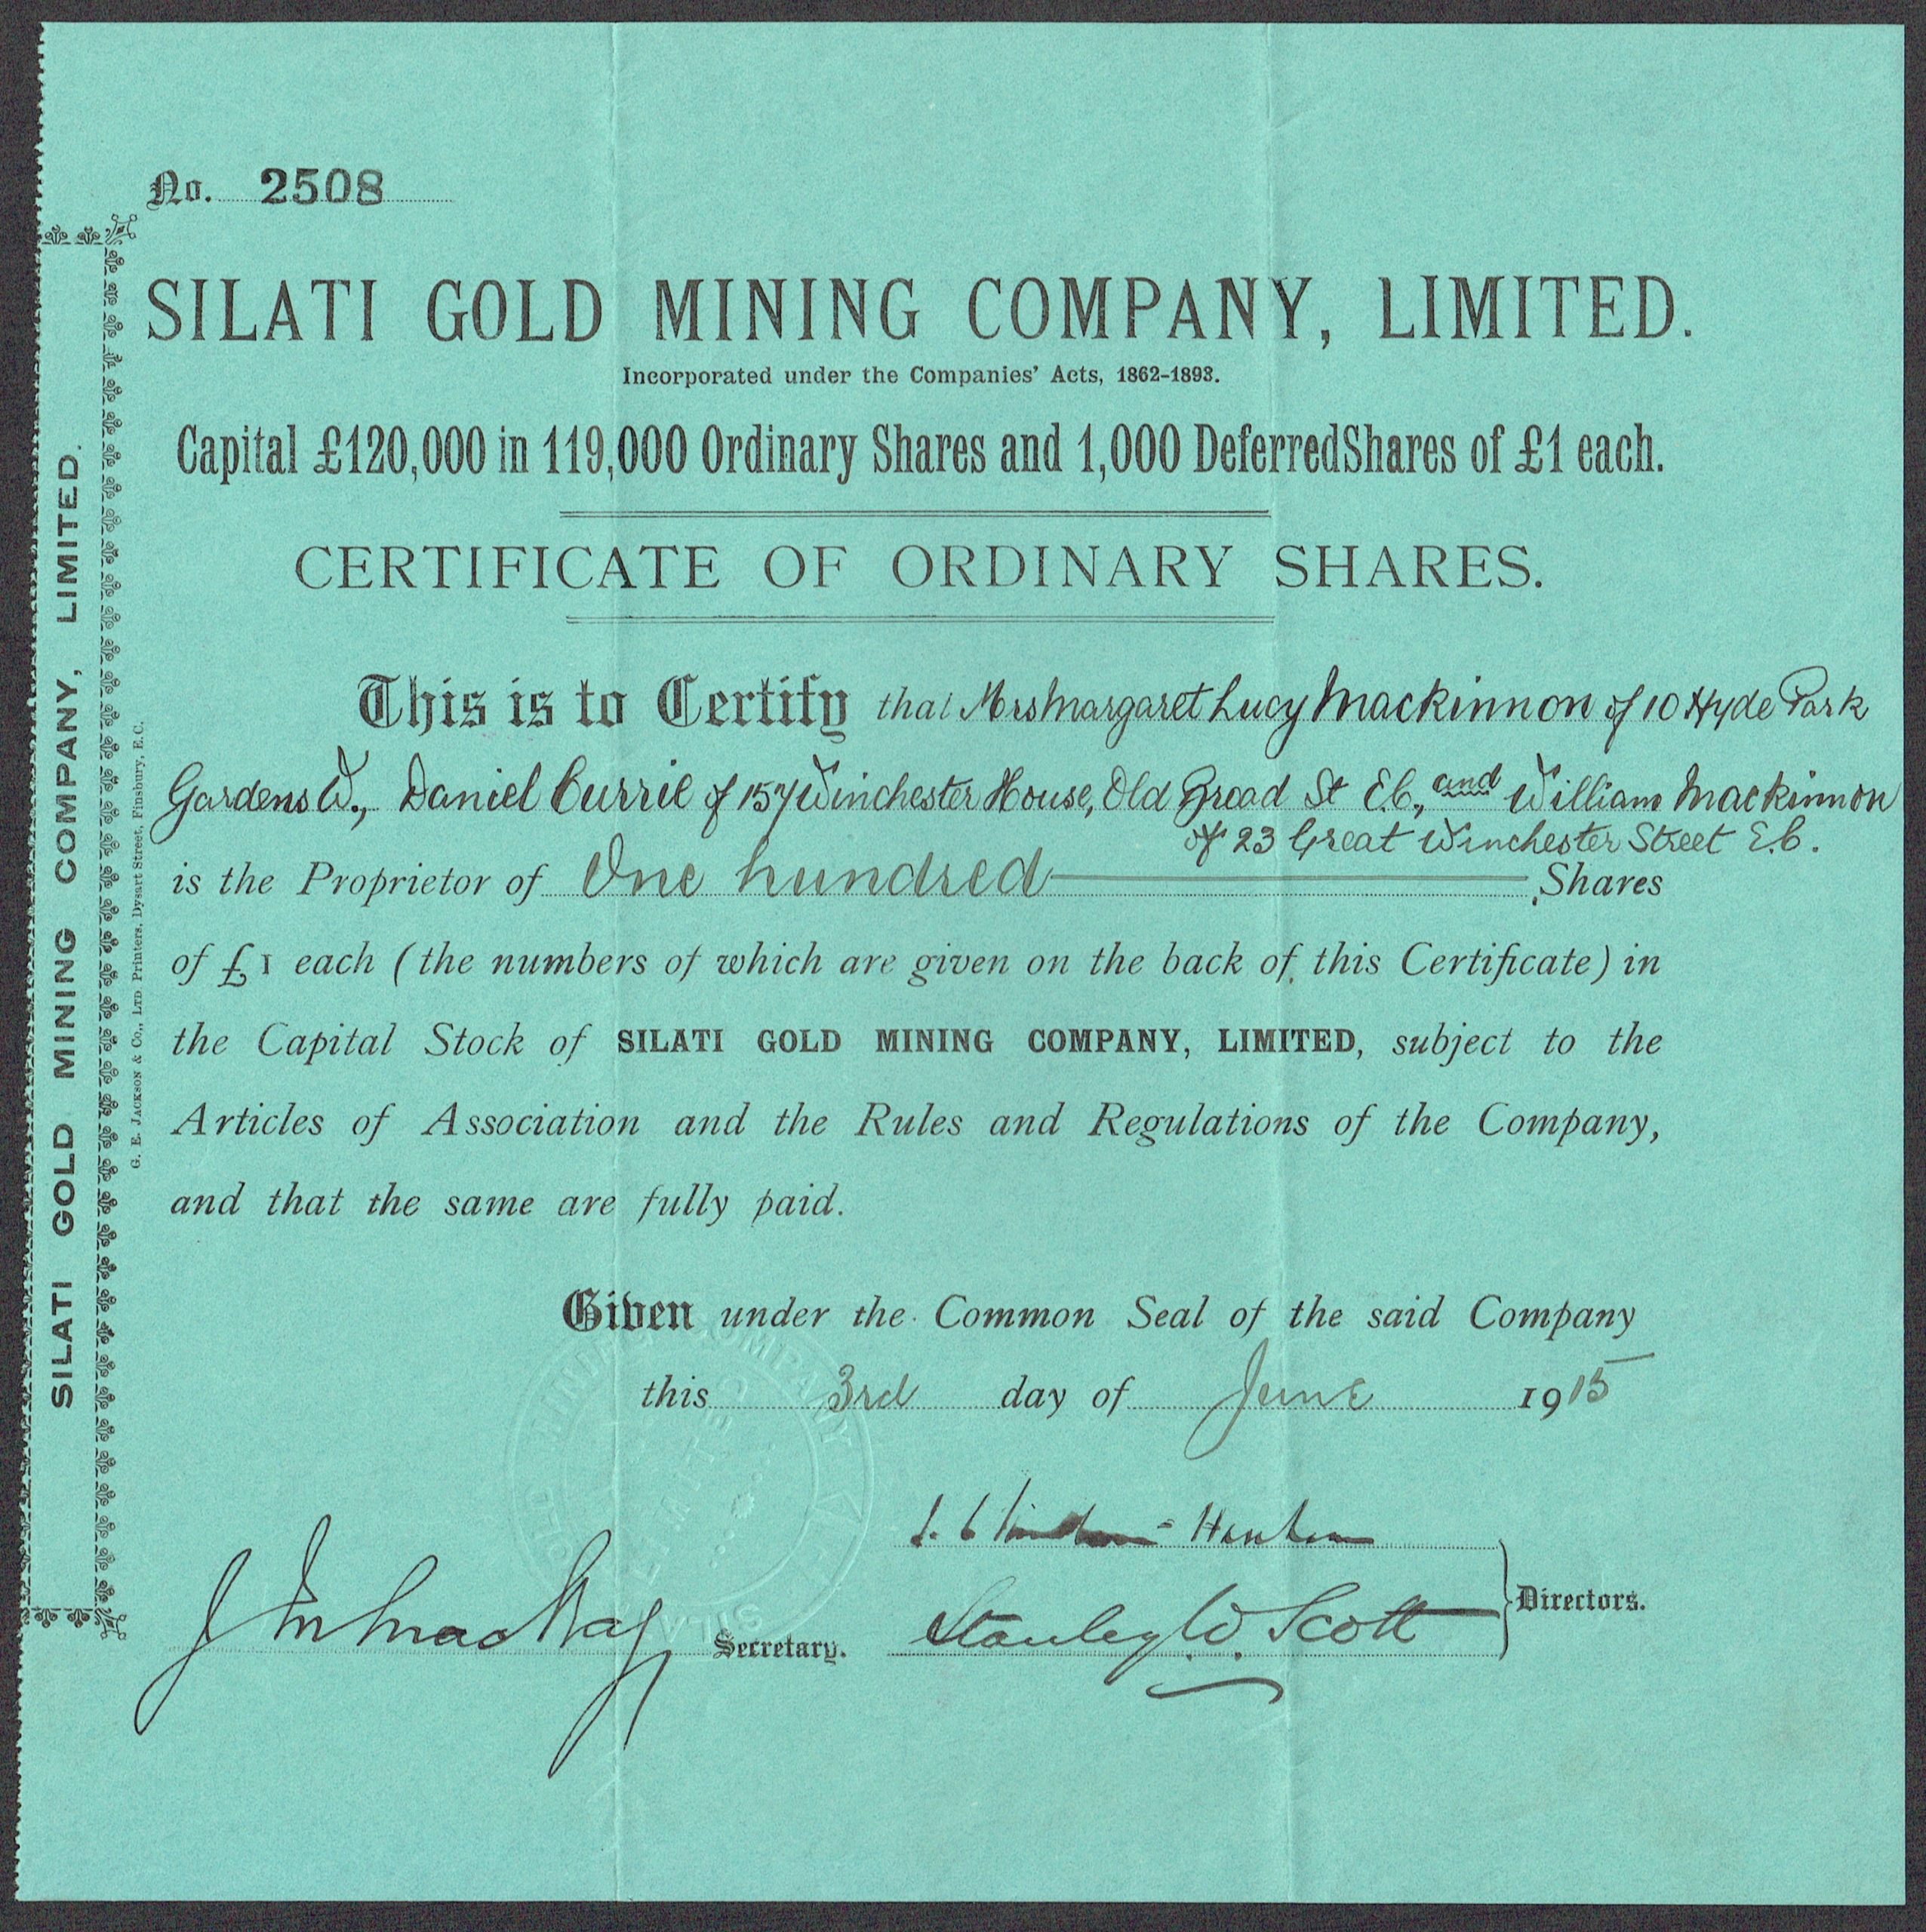 No. 2508
SILATI GOLD MINING COMPANY, LIMITED.
Incorporated under the Companies' Acts, 1862-1893.
Capital £120,000 in 119,000 Ordinary Shares and 1,000 Deferred Shares of £1 each.
CERTIFICATE OF ORDINARY SHARES.
This is to Certify that Mrs Margaret Lucy Mackinnon of 10 Hyde Park
Gardens W., Daniel Currie of 157 Winchester House, Old Broad St E.C., and William Mackinnon
of 23 Great Winchester Street E.C.
is the Proprietor of One hundred Shares
of £1 each (the numbers of which are given on the back of this Certificate) in
the Capital Stock of SILATI GOLD MINING COMPANY, LIMITED, subject to the
Articles of Association and the Rules and Regulations of the Company,
and that the same are fully paid.
Given under the Common Seal of the said Company
this 3rd day of June 1915
Stanley W. Scott
Secretary.
Directors.
SILATI GOLD MINING COMPANY, LIMITED.
G. E. JACKSON & Co., LTD Printers, Dysart Street, Finsbury, E.C.
MINING COMPANY
LIMITED
SILATI